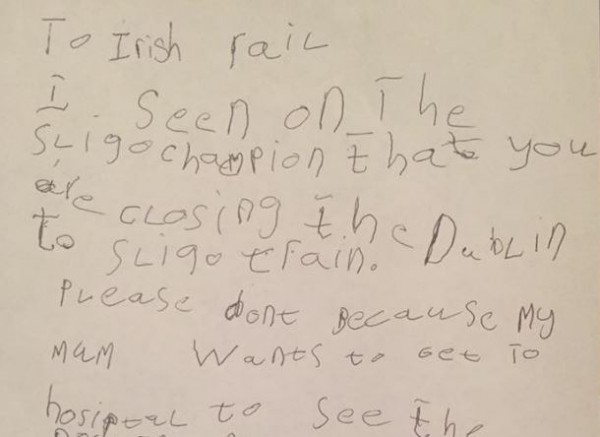 To Irish rail
I seen on The
Sligo champion that you
are closing the Dublin
to Sligo train.
Please dont Because my
mam wants to get to
hosiptal to see the